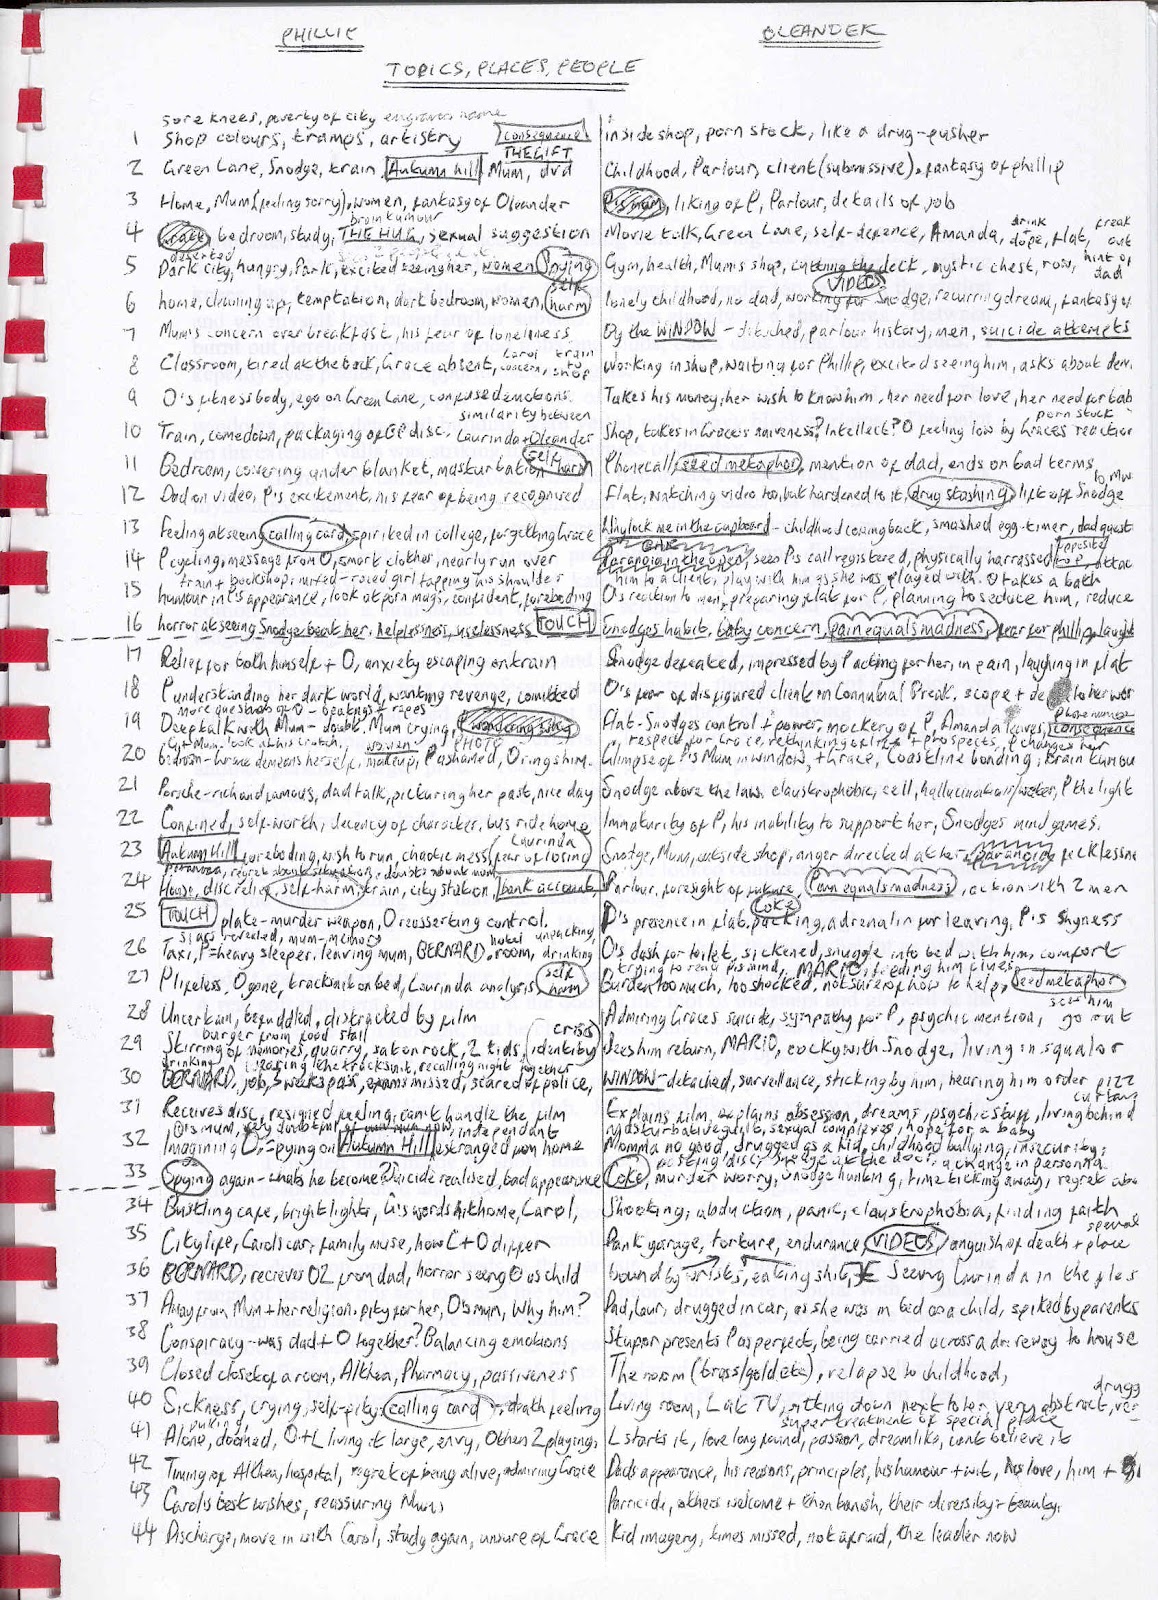 PHILLIP OLEANDER
TOPICS, PLACES, PEOPLE
sore knees, poverty of city engraves name
1 Shop colours, tramps, artistry consequence inside shop, porn stock, like a drug-pusher
THE GIFT
2 Green Lane, Snodge, train, Autumn Hill, Mum, dvd Childhood, Parlour, client (submissive), fantasy of phillip
3 Home, Mum (feeling sorry), women, fantasy of Oleander P's mum, liking of P, Parlour, details of job
brain tumour drink freak
4 bedroom, study, THE HUG, sexual suggestion Movie talk, Green Lane, self-defence, Amanda, dope, flat, out
deserted hint of
5 Dark city, hungry, Park, excited seeing her, women Spying Gym, health, Mum's shop, cutting the deck, mystic chest, row, dad
self VIDEOS
6 home, cleaning up, temptation, dark bedroom, women, harm lonely childhood, no dad, working for Snodge, recurring dream, fantasy of
7 Mum's concern over breakfast, his fear of loneliness By the WINDOW - detached, parlour history, men, suicide attempts
Carol train
8 Classroom, tired at the back, Grace absent, concern, to shop Working in shop, waiting for Phillip, excited seeing him, asks about
9 O's fitness body, ego on Green Lane, confused emotions. Takes his money, her wish to know him, her need for love, her need for bab
similarity between porn stock
10 Train, comedown, packaging of disc, Laurinda + Oleander Shop, takes in Grace's naiveness? Intellect? O feeling low by Graces reaction
self
11 Bedroom, covering under blanket, masturbation harm Phonecall, seed metaphor, mention of dad, ends on bad terms
to
12 Dad on video, P's excitement, his fear of being recognised Flat, watching video too, but hardened to it, drug stashing, lift off Snodge
13 Feeling at seeing calling card, spiked in college, forgetting Grace Why lock me in the cupboard - childhood coming back, smashed egg-timer, dad quest
14 P cycling, message from O, smart clothes, nearly run over Paranoia in the, sees P's call registered, physically harrassed
train + bookshop, mixed-raced girl tapping his shoulder him to a client, play with him as she was played with. O takes a bath
15 humour in P's appearance, look at porn mags, confident, foreboding O's reaction to men, preparing flat for P, planning to seduce him, reduce
16 horror at seeing Snodge beat her, helplessness, uselessness TOUCH Snodges habit, baby concern, pain equals madness, fear for phillip, laught
17 Relief for both himself + O, anxiety escaping on train Snodge defeated, impressed by P acting for her, in pain, laughing in flat
18 P understanding her dark world, wanting revenge, O's fear of disfigured client in Connubial Break, scope + to her wor
more questions of O - beatings + rapes
19 Deep talk with Mum - doubt, Mum crying, wandering Flat - Snodges control + power, mockery of P, Amanda leaves, consequence
PHOTO respect for Grace, rethinking of life + prospects, P changes her
20 bedroom - Grace demeans herself, makeup, P ashamed, O rings him. Glimpse of P's Mum in window, + Grace, Coastline bonding, brain tumou
21 Porsche - rich and famous, dad talk, picturing her past, nice day Snodge above the law, claustrophobic, cell, hallucination/water, P the light
22 Confined, self-worth, decency of character, bus ride home Immaturity of P, his inability to support her, Snodges mind games.
Laurinda
23 Autumn Hill, foreboding, wish to run, chaotic mess, fear of losing Snodge, Mum, outside shop, anger directed at her, paranoia, fecklessne
24 House, disc relief, self-harm, train, city station, bank account, Parlour, foresight of future, Pain equals madness, action with 2 men
COKE
25 TOUCH plate-murder weapon, O reasserting control. P's presence in flat, packing, adrenalin for leaving, P's shyness
hotel unpacking,
26 Taxi, P = heavy sleeper, leaving mum, BERNARD, room, drinking O's dash for toilet, sickened, snuggle into bed with him, comfort
self trying to read P's mind, MARIO, feeding him lines
27 P lifeless, O gone, tracksuit on bed, Laurinda analysis, harm Burden too much, too shocked, not sure of how to help, seed metaphor
28 Uncertain, befuddled, distracted by film Admiring Graces suicide, sympathy for P, psychic mention, go out
burger from food stall crisis
29 Stirring of memories, quarry, sat on rock, 2 kids, identity Sees him return, MARIO, cocky with Snodge, living in squalor
drinking wearing the tracksuit, recalling night together
30 BERNARD, job, 3 weeks pass, exams missed, scared of police, WINDOW - detached, surveillance, sticking by him, hearing him order pizz
curtains
31 Receives disc, resigned feeling, can't handle the film Explains film, explains obsession, dreams, psychic stuff, living behind
sexual complexes, hope for a baby
32 Imagining O, spying on Autumn Hill, estranged from home Momma no good, drugged as a kid, childhood bullying, insecurity,
posting disc, Snodge at the door, a change in persona
33 Spying again - whats he become? Suicide realised, bad appearance COKE, murder worry, Snodge hunting, time ticking away, regret
34 Bustling cafe, bright lights, G's words hit home, Carol, Shooting, abduction, panic, claustrophobia, finding faith
special
35 City life, Carols car, family muse, how C + O differ Dank garage, torture, endurance, VIDEOS, anguish of death + place
36 BERNARD, recieves O2 from dad, horror seeing O as child bound by wrists, eating shit, Seeing Laurinda in the
37 Away from Mum + her religion, pity for her, O's mum, Why him? Dad, Laur, drugged in car, as she was in bed as a child, spiked by parents
38 Conspiracy - was dad + O together? Balancing emotions Stupor presents P as perfect, being carried across a driveway to house
39 Closed closet of a room, Althea, Pharmacy, passiveness The room (brass/gold etc), relapse to childhood,
drugg
40 Sickness, crying, self-pity, calling card, death feeling Living room, L at TV, sitting down next to her, very abstract,
puking super treatment of special place
41 Alone, doomed, O + L living it large, envy, Other 2 playing, L starts it, love long found, passion, dreamlike, cant believe it
42 Timing of Althea, hospital, regret of being alive, admiring Grace Dads appearance, his reasons, principles, his humour + wit, his love, him +
43 Carol's best wishes, reassuring Mum, Parricide, others welcome + then banish, their diversity + beauty.
44 Discharge, move in with Carol, study again, unsure of Grace Kid imagery, times missed, not afraid, the leader now